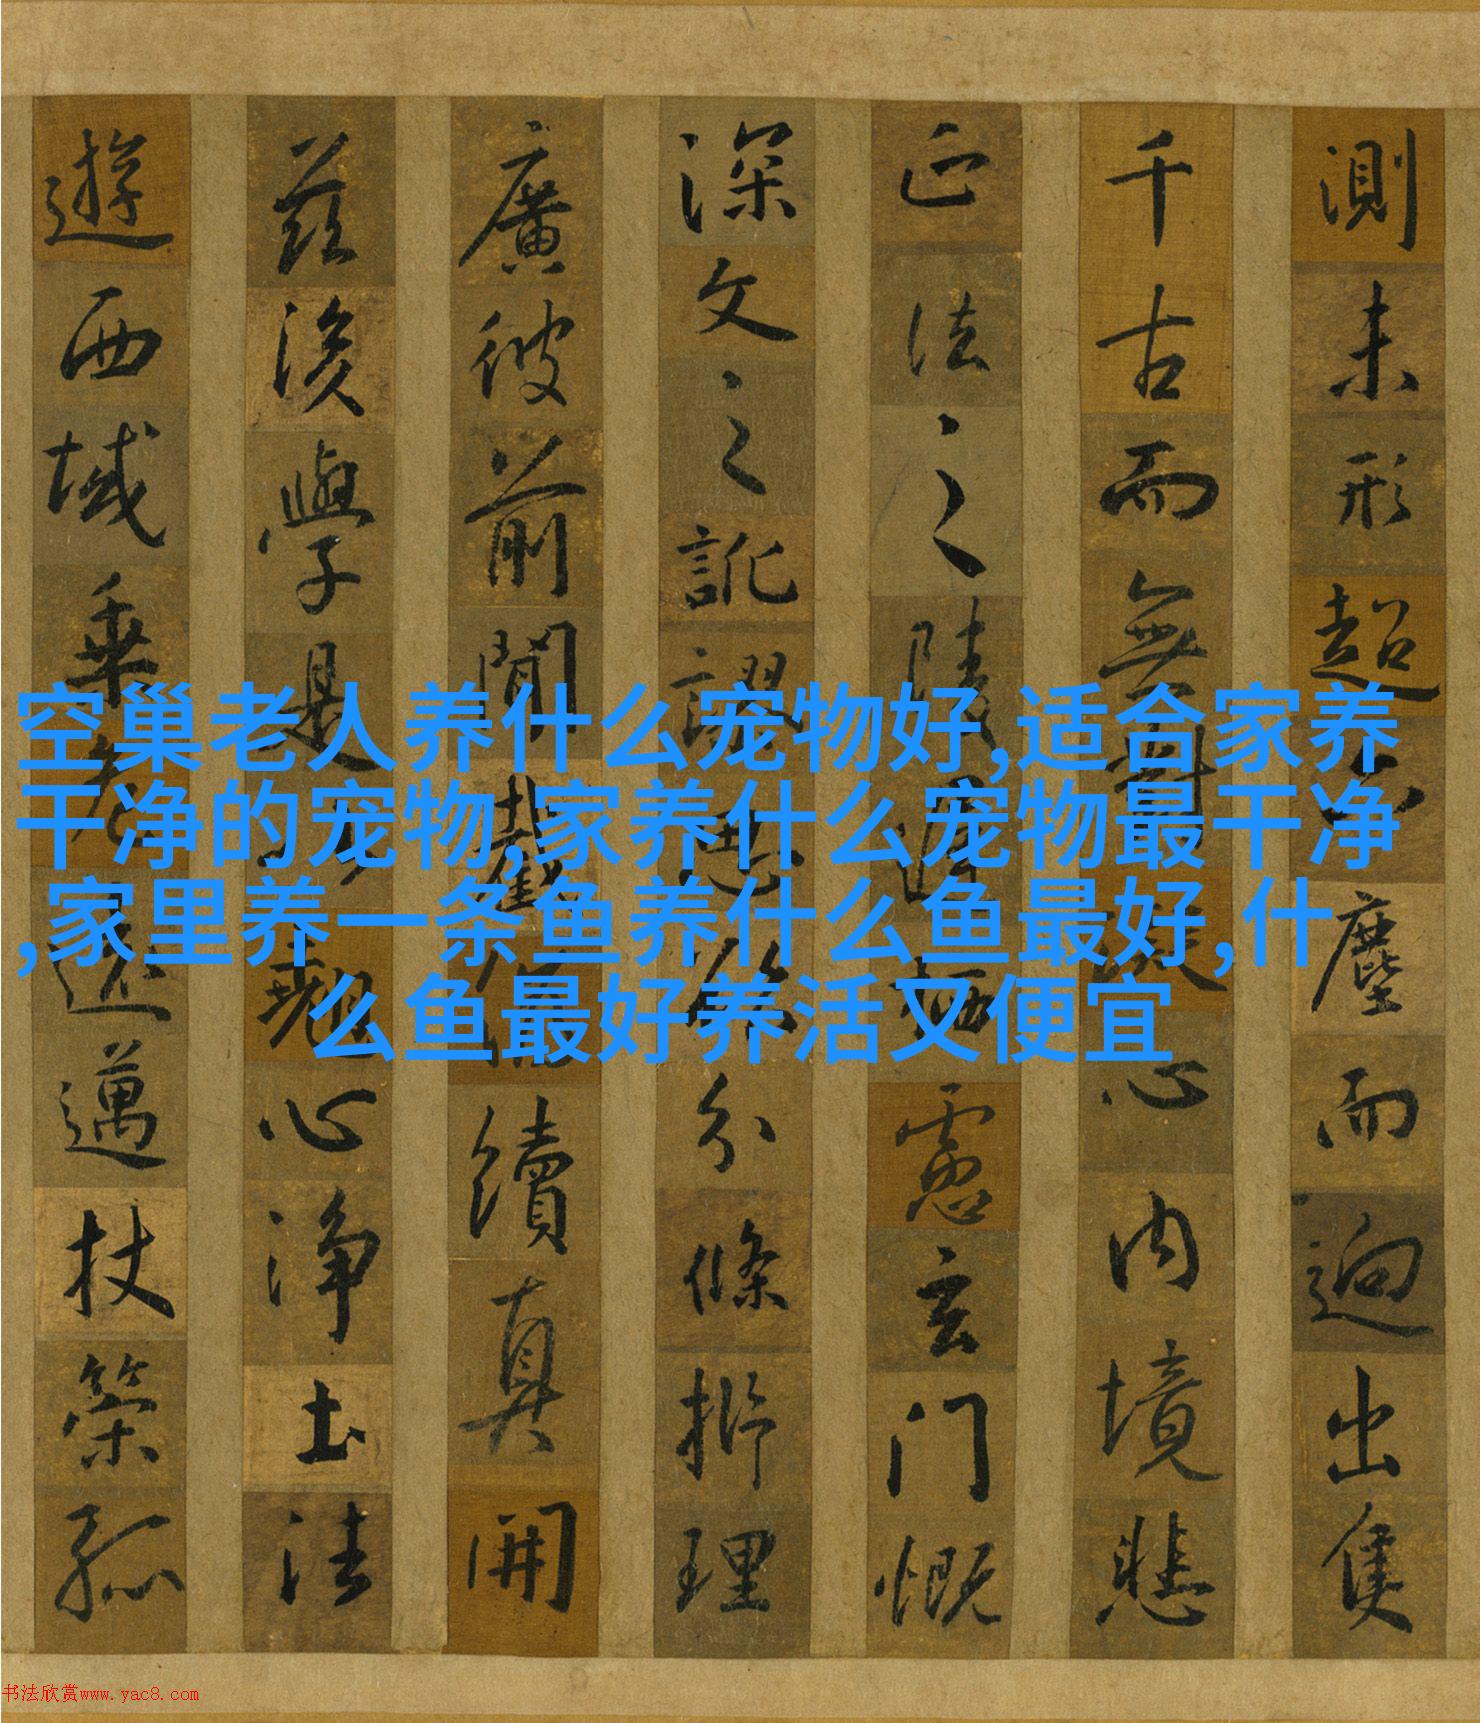 空巢老人养什么宠物好,适合家养
干净的宠物,家养什么宠物最干净
,家里养一条鱼养什么鱼最好,什
么鱼最好养活又便宜
測未形超塵而迥出隻
千古而無對心內境悲
正法之陵遲栖慮玄門慨
深文之訛謬思分條析理
廣彼前聞截續真開
茲後學是翹心淨土法
遊西域乘遠邁杖策孤
书法欣赏www.yac8.com